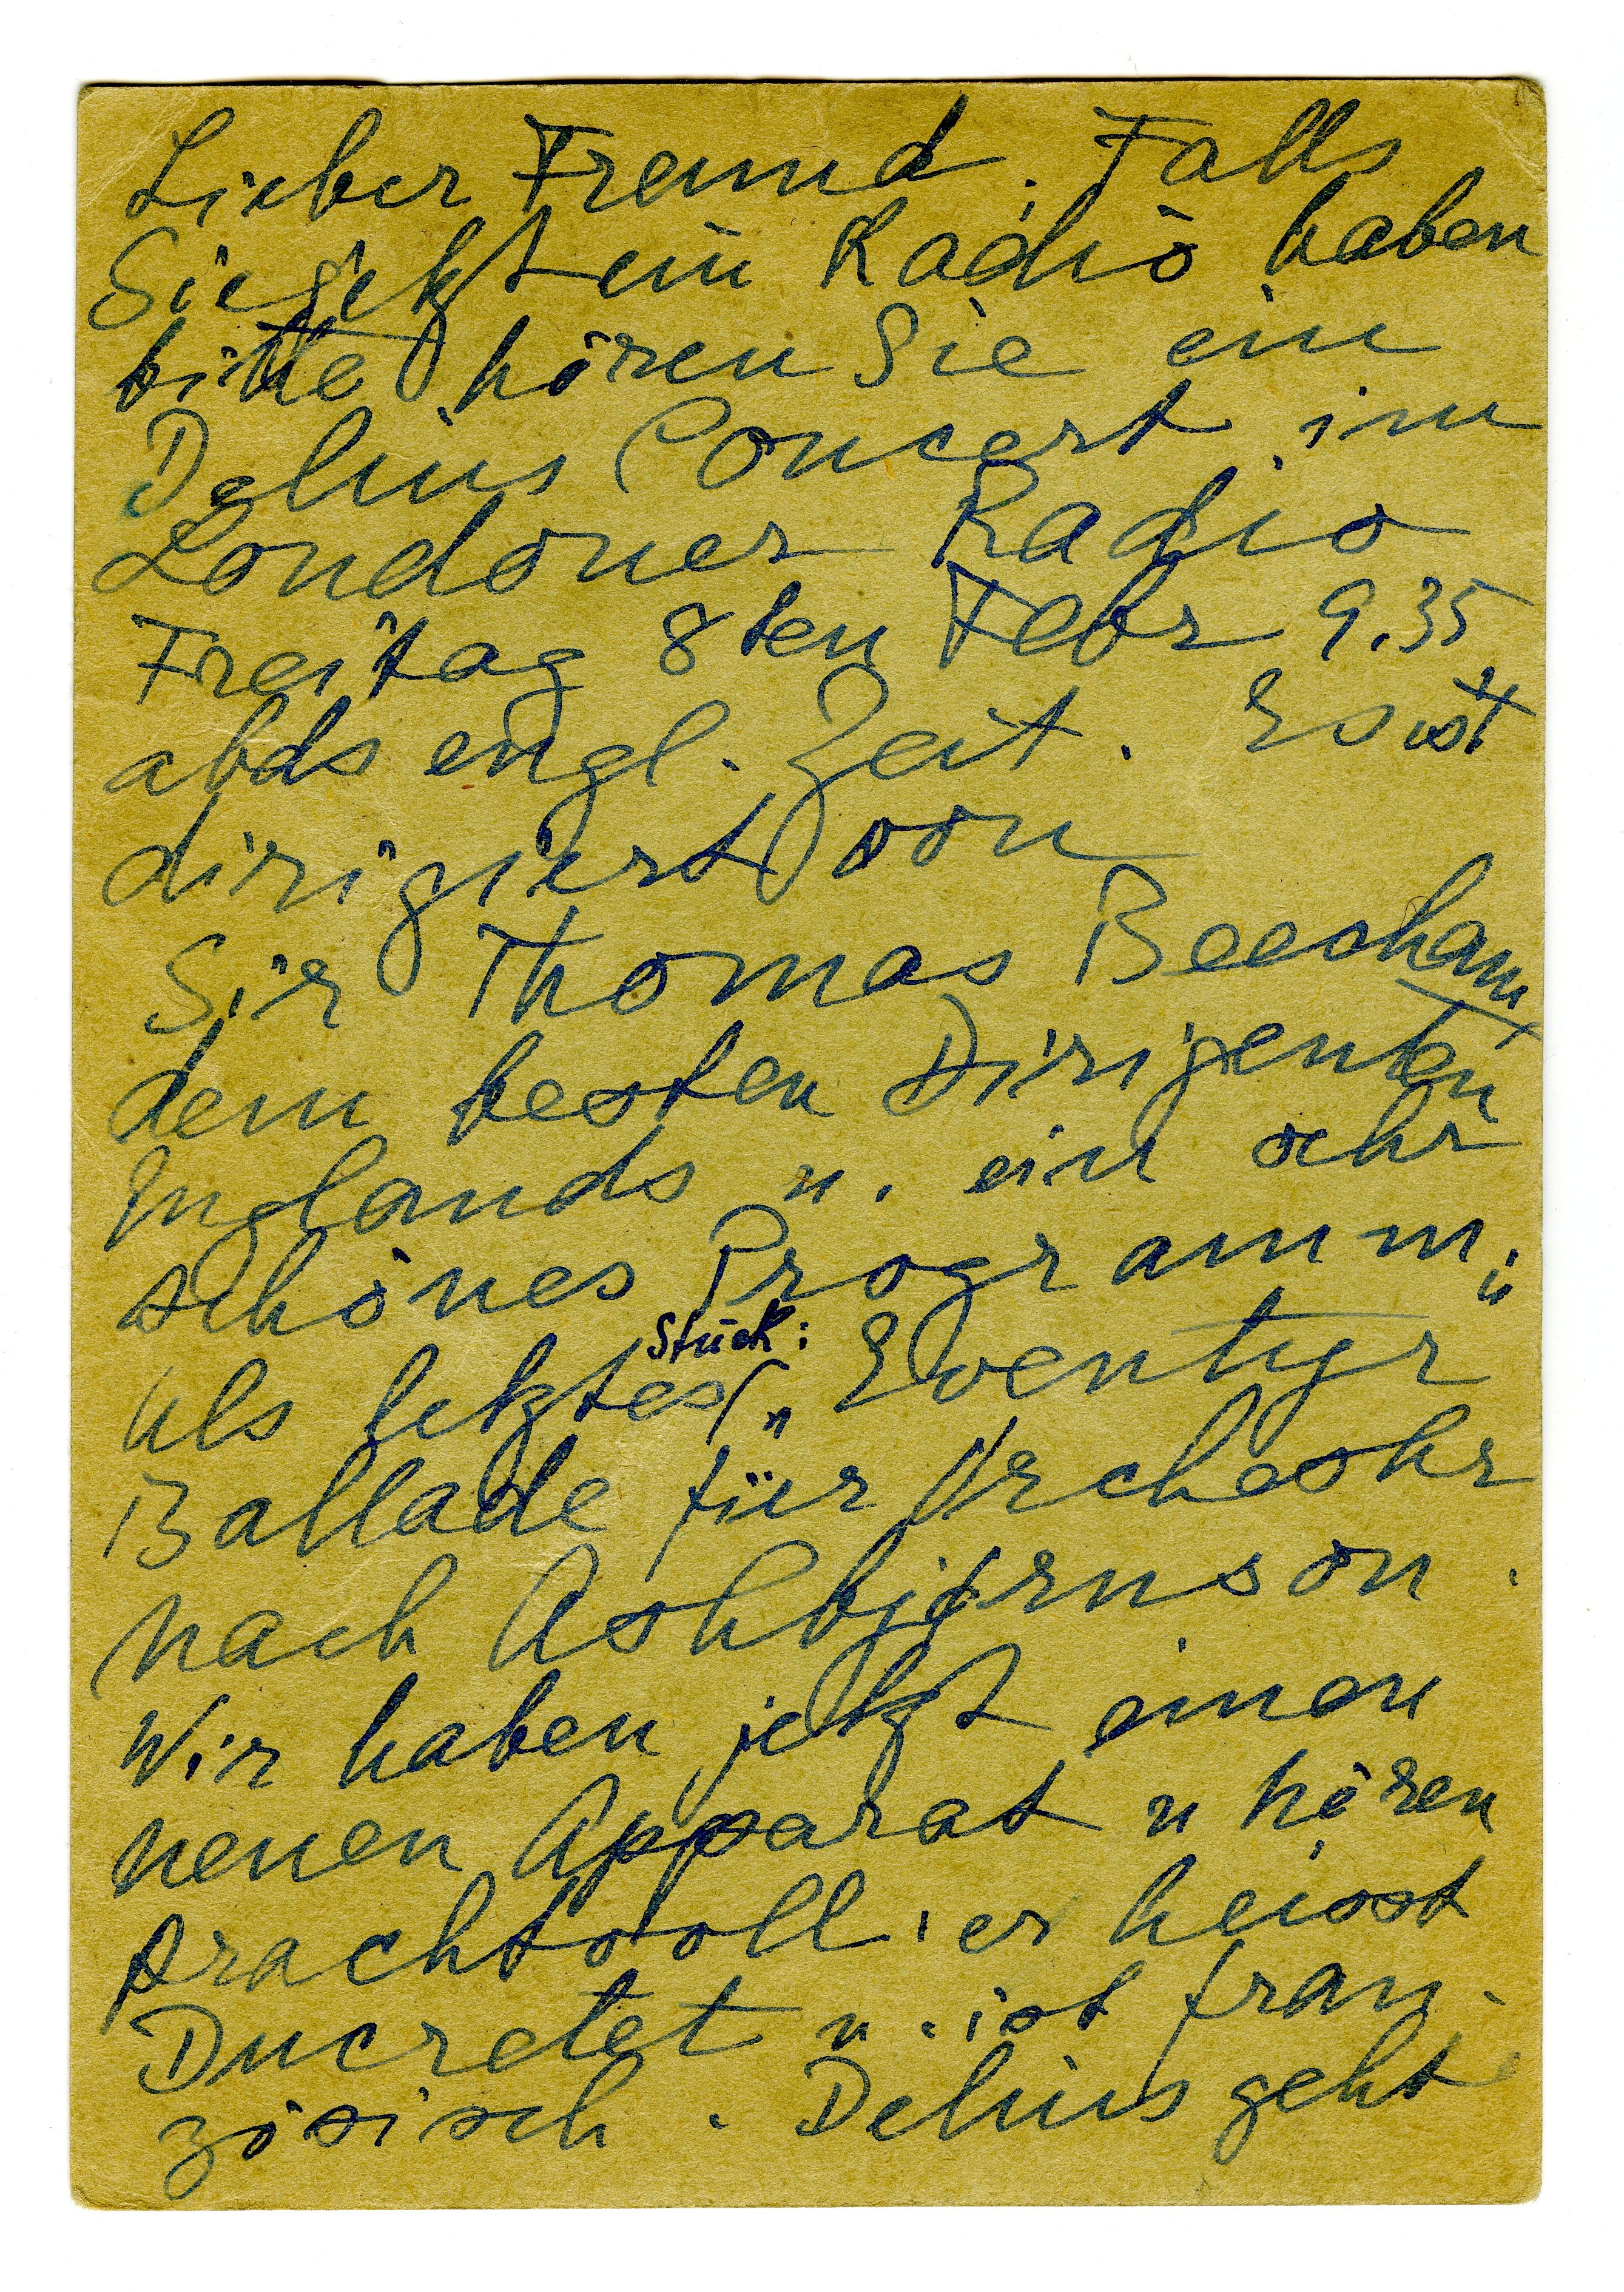 Lieber Freund. Falls
Sie jetzt ein Radio haben
bitte hören Sie ein
Delius Concert im
Londoner Radio
Freitag 8ten Febr 9.35
abds engl. Zeit. Es ist
dirigiert von
Sir Thomas Beecham
dem besten Dirigenten
Englands u. ein sehr
schönes Programm.
Als letztes Stück: „Eventyr"
Ballade für Orchestr
nach Ashbjørnson.
Wir haben jetzt einen
neuen Apparat u hören
prachtvoll: er heisst
Ducretet u. ist fran-
zösisch. Delius geht